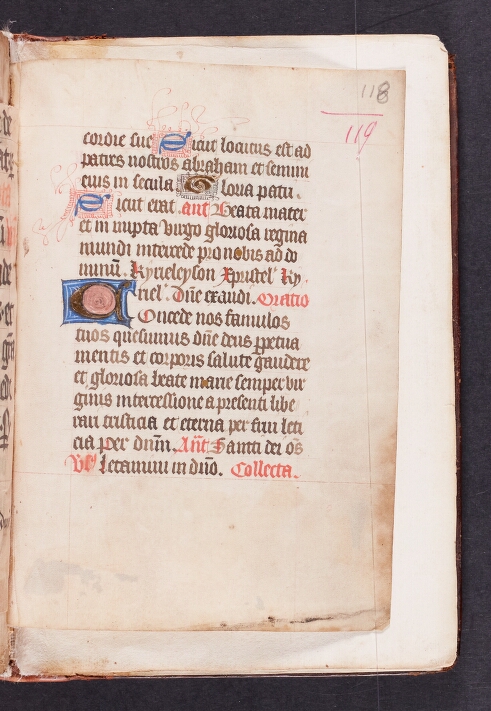 118
119
cordie sue Sicut locutus est ad
patres nostros abraham et semini
eius in secula Gloria patri.
Sicut erat .ant̄ Beata mater
et in nupta virgo gloriosa regina
mundi intercede pro nobis ad do
minū. Kyrieleyson Xpistel' Ky
riel' Dn̄e exaudi. Oratio
Concede nos famulos
tuos quesumus dn̄e deus ꝑpetua
mentis et corporis salute gaudere
et gloriosa beate marie semper vir
ginis intercessione a presenti libe
rari tristicia et eterna per frui leti
cia Per dnm̄. An̄t Sancti dei om̄s
Vs' Letamini in dn̄o. Collecta.